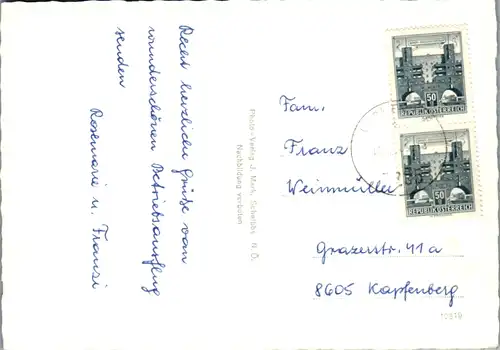 Recht herzliche Grüße vom
wunderschönen Betriebsausflug
senden
Rosemarie u. Franzi
Photo-Verlag J. Mark, Scheibbs N. Ö.
Nachbildung verboten
50
REPUBLIK ÖSTERREICH
50
REPUBLIK ÖSTERREICH
Fam.
Franz
Weinmüller
Grazerstr. 41a
8605 Kapfenberg